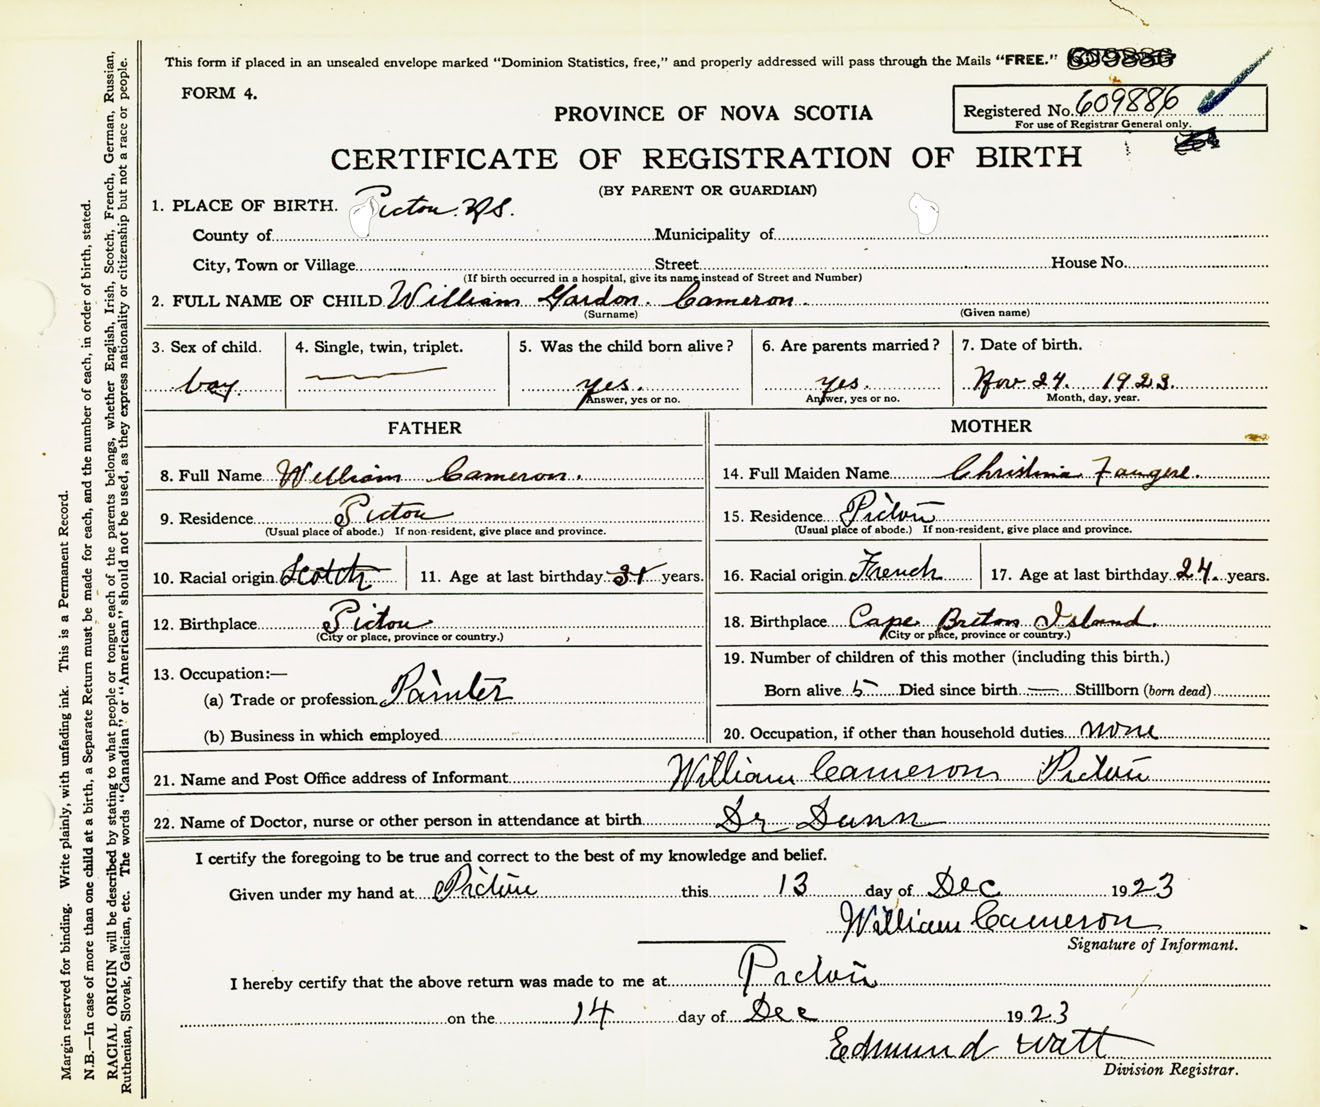 This form if placed in an unsealed envelope marked "Dominion Statistics, free," and properly addressed will pass through the Mails "FREE."
FORM 4.
PROVINCE OF NOVA SCOTIA
Registered No. 609886
For use of Registrar General only.
CERTIFICATE OF REGISTRATION OF BIRTH
(BY PARENT OR GUARDIAN)
1. PLACE OF BIRTH. Pictou. N.S.
County of Municipality of
City, Town or Village Street House No.
(If birth occurred in a hospital, give its name instead of Street and Number)
2. FULL NAME OF CHILD William Gordon Cameron.
(Surname) (Given name)
3. Sex of child. 4. Single, twin, triplet. 5. Was the child born alive? 6. Are parents married? 7. Date of birth.
boy. yes. yes. Nov 24. 1923.
Answer, yes or no. Answer, yes or no. Month, day, year.
FATHER
8. Full Name William Cameron.
9. Residence Pictou
(Usual place of abode.) If non-resident, give place and province.
10. Racial origin Scotch 11. Age at last birthday 31 years.
12. Birthplace Pictou
(City or place, province or country.)
13. Occupation:—
(a) Trade or profession Painter
(b) Business in which employed
MOTHER
14. Full Maiden Name Christina
15. Residence Pictou
(Usual place of abode.) If non-resident, give place and province.
16. Racial origin French 17. Age at last birthday 24. years.
18. Birthplace Cape Breton Island.
(City or place, province or country.)
19. Number of children of this mother (including this birth.)
Born alive 5 Died since birth — Stillborn (born dead)
20. Occupation, if other than household duties none
21. Name and Post Office address of Informant William Cameron Pictou
22. Name of Doctor, nurse or other person in attendance at birth Dr Dunn
I certify the foregoing to be true and correct to the best of my knowledge and belief.
Given under my hand at Pictou this 13 day of Dec 1923
William Cameron
Signature of Informant.
I hereby certify that the above return was made to me at Pictou
on the 14 day of Dec 1923
Edmund Watt
Division Registrar.
Margin reserved for binding. Write plainly, with unfading ink. This is a Permanent Record.
N.B.—In case of more than one child at a birth, a Separate Return must be made for each, and the number of each, in order of birth, stated.
RACIAL ORIGIN will be described by stating to what people or tongue each of the parents belongs, whether English, Irish, Scotch, French, German, Russian,
Ruthenian, Slovak, Galician, etc. The words "Canadian" or "American" should not be used, as they express nationality or citizenship but not a race or people.